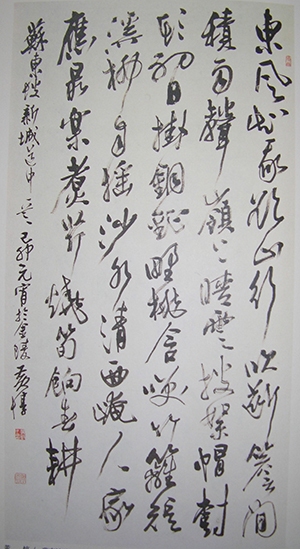 東風知我欲山行吹斷簷間
積雨聲嶺上晴雲披絮帽樹
頭初日掛銅鉦野桃含笑竹籬短
溪柳自搖沙水清西崦人家
應最樂煮芹燒筍餉春耕
蘇東坡新城道中 己卯元宵於金陵黃惇